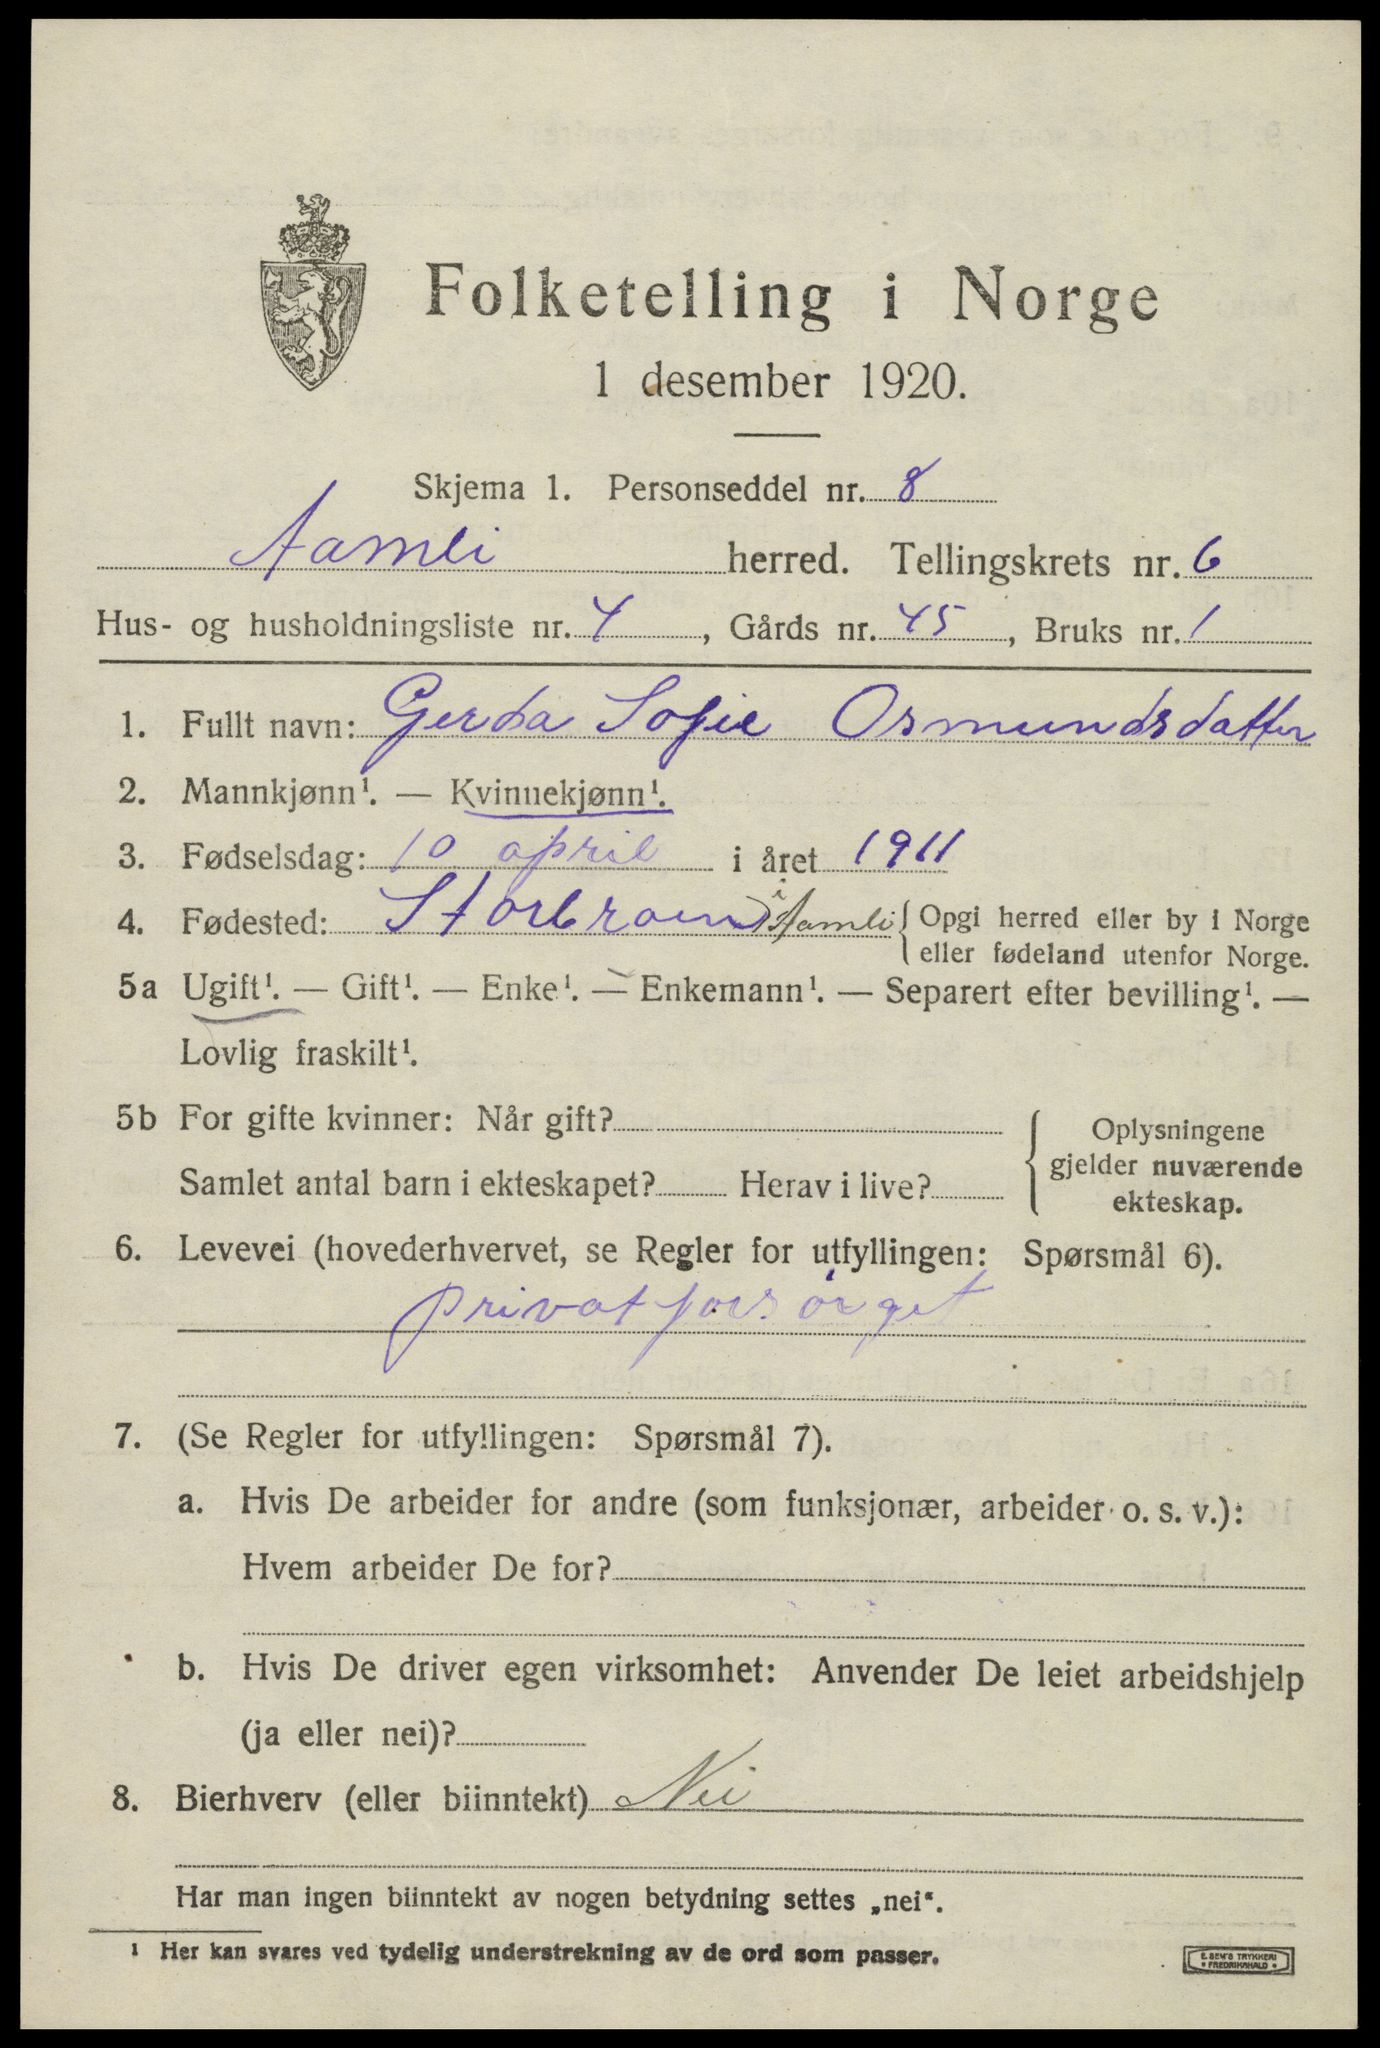 Folketelling i Norge
1 desember 1920.
Skjema 1. Personseddel nr. 8
Aamli herred. Tellingskrets nr. 6
Hus- og husholdningsliste nr. 4, Gårds nr. 45, Bruks nr. 1
1. Fullt navn: Gerda Sofie Osmundsdatter
2. Mannkjønn¹. — Kvinnekjønn¹.
3. Fødselsdag: 10 april i året 1911
4. Fødested: i Aamli { Opgi herred eller by i Norge
eller fødeland utenfor Norge.
5a Ugift¹. — Gift¹. — Enke¹. — Enkemann¹. — Separert efter bevilling¹. —
Lovlig fraskilt¹.
5b For gifte kvinner: Når gift?
Samlet antal barn i ekteskapet? Herav i live?
{ Oplysningene
gjelder nuværende
ekteskap.
6. Levevei (hovederhvervet, se Regler for utfyllingen: Spørsmål 6).
privat forsørget
7. (Se Regler for utfyllingen: Spørsmål 7).
a. Hvis De arbeider for andre (som funksjonær, arbeider o. s. v.):
Hvem arbeider De for?
b. Hvis De driver egen virksomhet: Anvender De leiet arbeidshjelp
(ja eller nei)?
8. Bierhverv (eller biinntekt) Nei
Har man ingen biinntekt av nogen betydning settes „nei“.
¹ Her kan svares ved tydelig understrekning av de ord som passer.
E. SEM'S TRYKKERI
• FREDRIKSHALD •